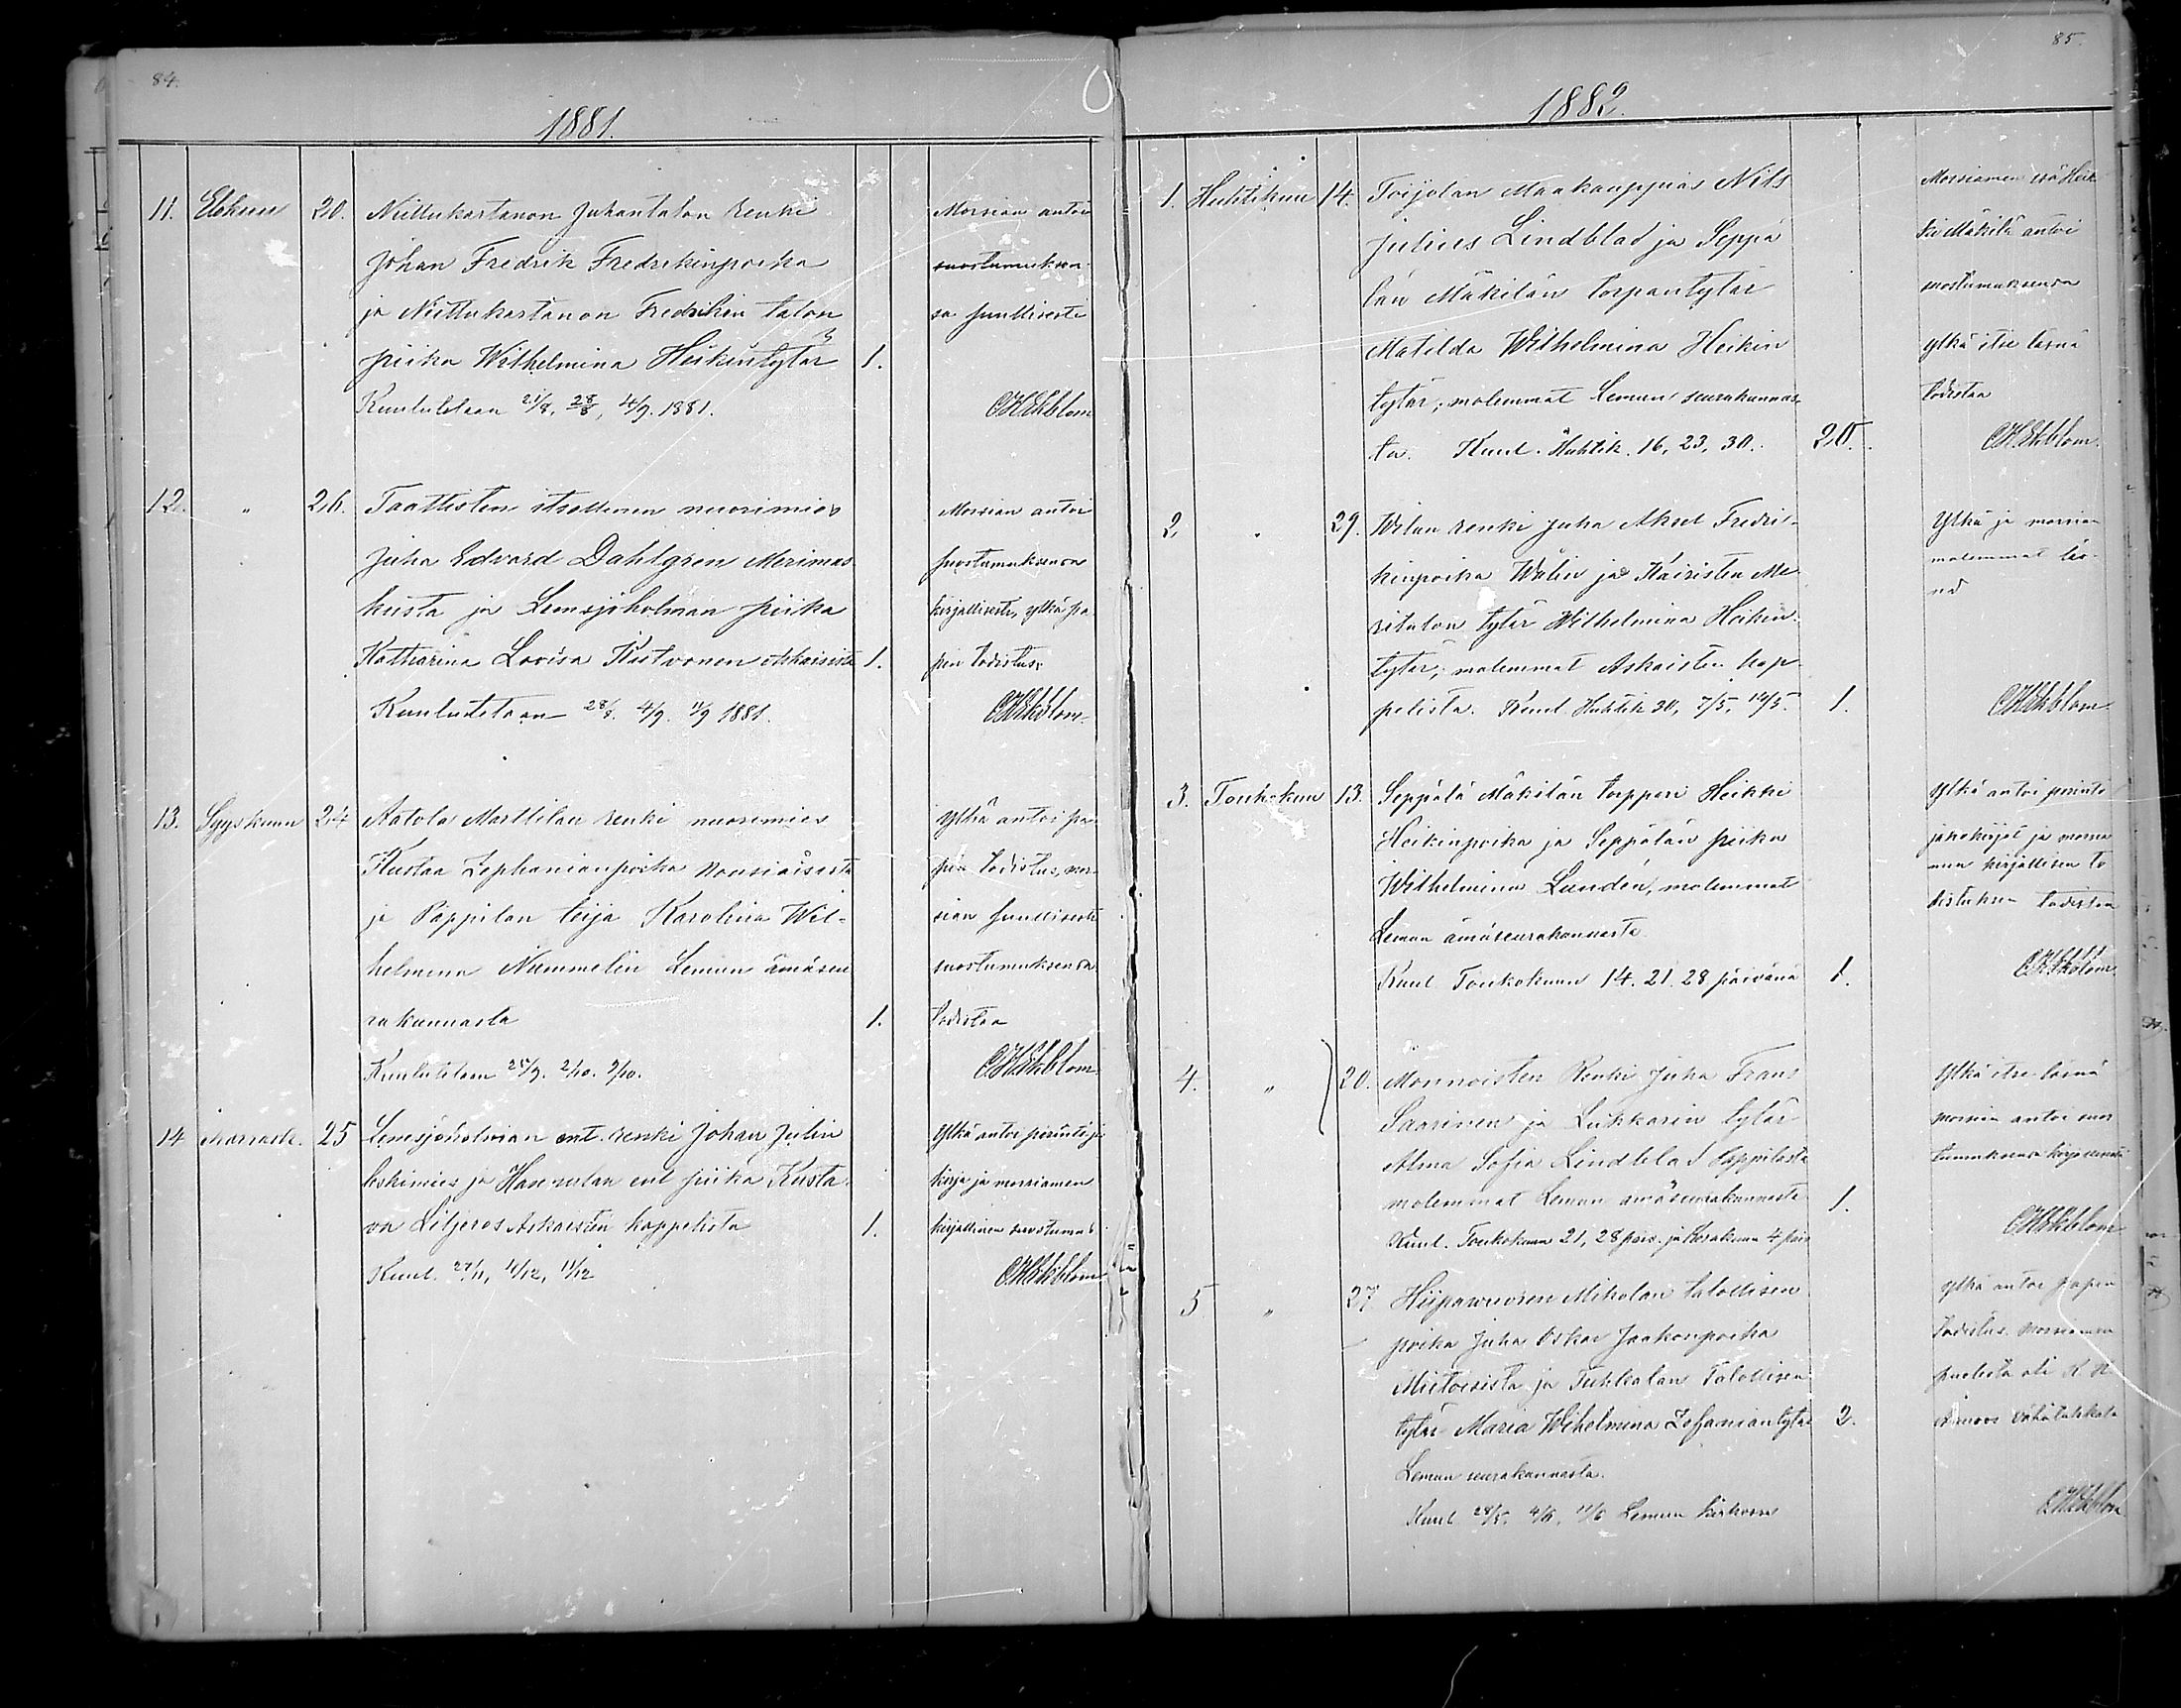 84.
1881.
11. Elokuu 20. Niittukartanon Juhantalon renki
Johan Fredrik Fredrikinpoika
ja Niittukartanon Fredrikin talon
piika Wilhelmina Heikintytär 1.
Kuulutetaan 21/8, 28/8, 4/9. 1881.
Morsian antoi
suostumuksen
sa suullisesti
CHEkblom
12. " 26. Taattisten itsellinen nuorimies
Juha Edvard Dahlgren Merimas
kusta ja Lemsjöholman piika
Katharina Lovisa Askaisista 1.
Kuulutetaan 28/8. 4/9. 11/9 1881.
Morsian antoi
suostumuksensa
kirjallisesti, ylkä pa-
pin todistus.
CHEkblom
13. Syyskuun 24 Aatola Marttilan renki nuorimies
Kustaa Zephanianpoika Nousiaisista
ja Pappilan teija Karolina Wil-
helmina Nummelin Lemun ämäseu
rakunnasta 1.
Kuulutetaan 25/9. 2/10. 9/10.
Ylkä antoi pa-
pin todistus, mor-
sian suullisesti
suostumuksensa
todistaa
CHEkblom
14 Marrask. 25 Lemsjöholman ent. renki Johan Julin
leskimies ja Hannulan ent piika Kusta
va Liljeros Askaisten kappelista 1.
Kuul. 27/11, 4/12, 11/12
Ylkä antoi perintöja
kirja ja morsiamen
kirjallinen suostumus
CHEkblom
85.
1882.
1. Huhtikuu 14. Toijolan Maakauppias Nils
Julius Lindblad ja Seppä
län Mäkilän torpantytär
Matilda Wilhelmina Heikin
tytär; molemmat Lemun seurakunnas-
ta. Kuul. Huhtik. 16, 23, 30. 20.
Morsiamen isä Heik
ki Mäkilä antoi
suostumuksensa
ylkä itse läsnä
todistaa
CHEkblom.
2. " 29. Wilun renki Juha Aksel Fredri-
kinpoika Walin ja Kairisten Me
ritalon tytär Wilhelmina Heikin
tytär; molemmat Askaisten kap
pelista. Kuul. Huhtik 30, 7/5, 14/5. 1.
Ylkä ja morsian
molemmat läs-
nä
CHEkblom
3. Toukokuu 13. Seppälä Mäkilän torppari Heikki
Heikinpoika ja Seppälän piika
Wilhelmina Lundén, molemmat
Lemun ämäseurakunnasta.
Kuul Toukokuun 14. 21. 28 päivänä 1.
Ylkä antoi perintö
jakokirjat ja morsia
men kirjallisen to
distuksen todistaa
CHEkblom
4. " 20. Monnoisten Renki Juha Frans
Saarinen ja Lukkarin tytär
Alma Sofia Lindblad Pappilasta
molemmat Lemun ämäseurakunnasta 1.
Kuul. Toukokuun 21, 28 päiv. ja Kesäkuun 4 päiv
Ylkä itse läsnä
morsian antoi suos
tumuksensa kirjallisesti
CHEkblom
5 " 27 Hiipawuoren Mikolan talollisen
poika Juha Oskar Jaakonpoika
Mietoisista ja Tuhkalan Talollisen
tytär Maria Wilhelmina Zefaniantytär 2.
Lemun seurakunnasta.
Kuul 28/5. 4/6, 11/6 Lemun kirkossa
Ylkä antoi papin
todistus. Morsiamen
puolesta oli
CHEkblom